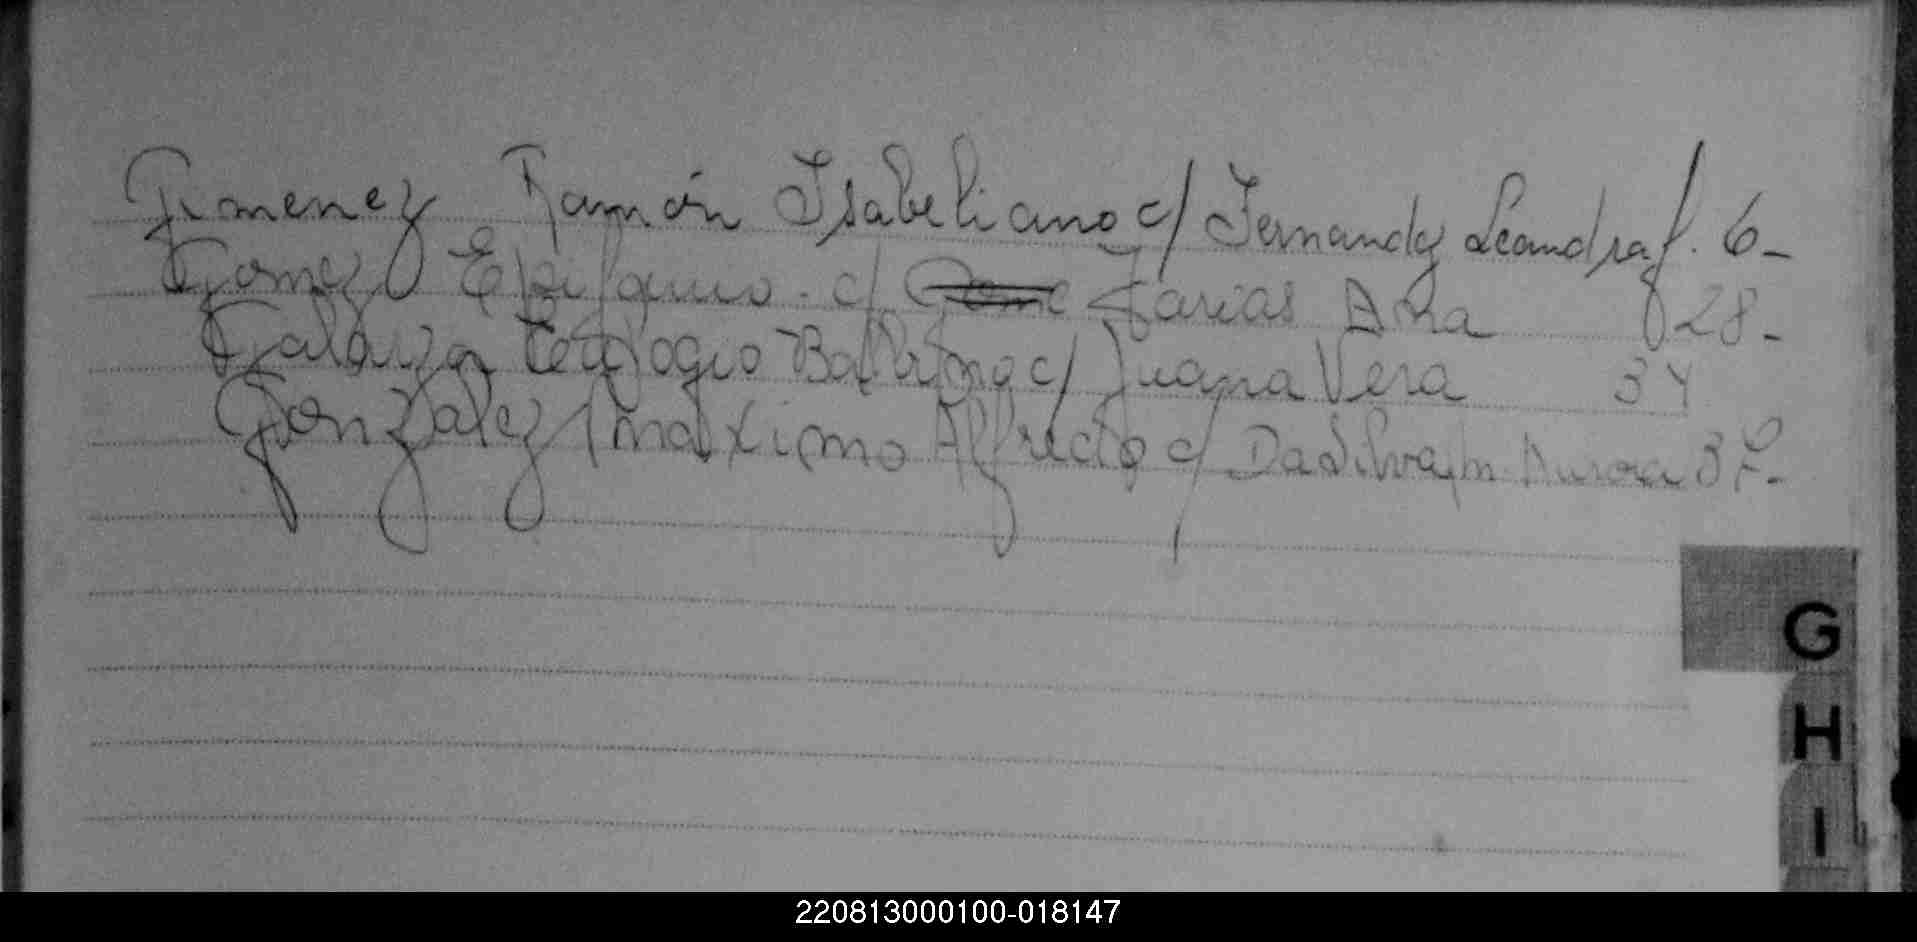 Gimenez Ramón Isabeliano c/ Fernandez Leandra f. 6-
Gomez Epifanio. c/ Farias Ana f 28-
Galarza Teofogio Balbino c/ Juana Vera 34
Gonzalez Maximo Alfredo c/ Da Silva m. Aurora 37-
G
H
I
220813000100-018147